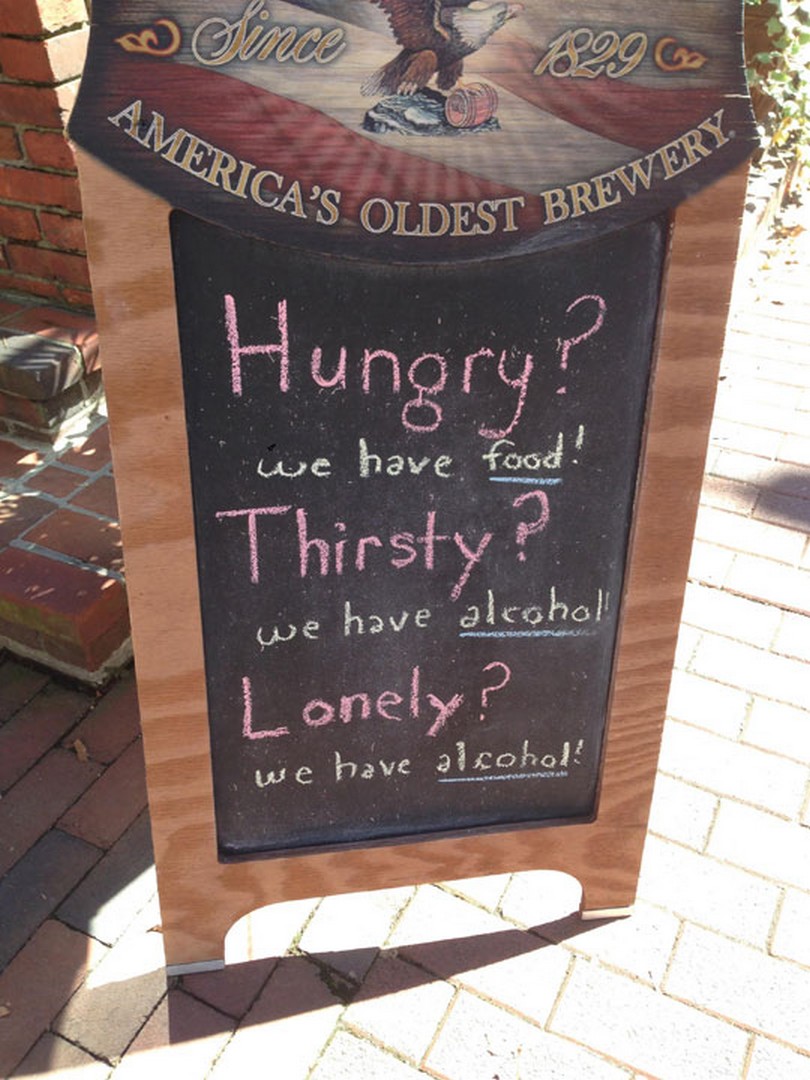 Since 1829
AMERICA'S OLDEST BREWERY
Hungry?
we have food!
Thirsty?
we have alcohol!
Lonely?
we have alcohol!